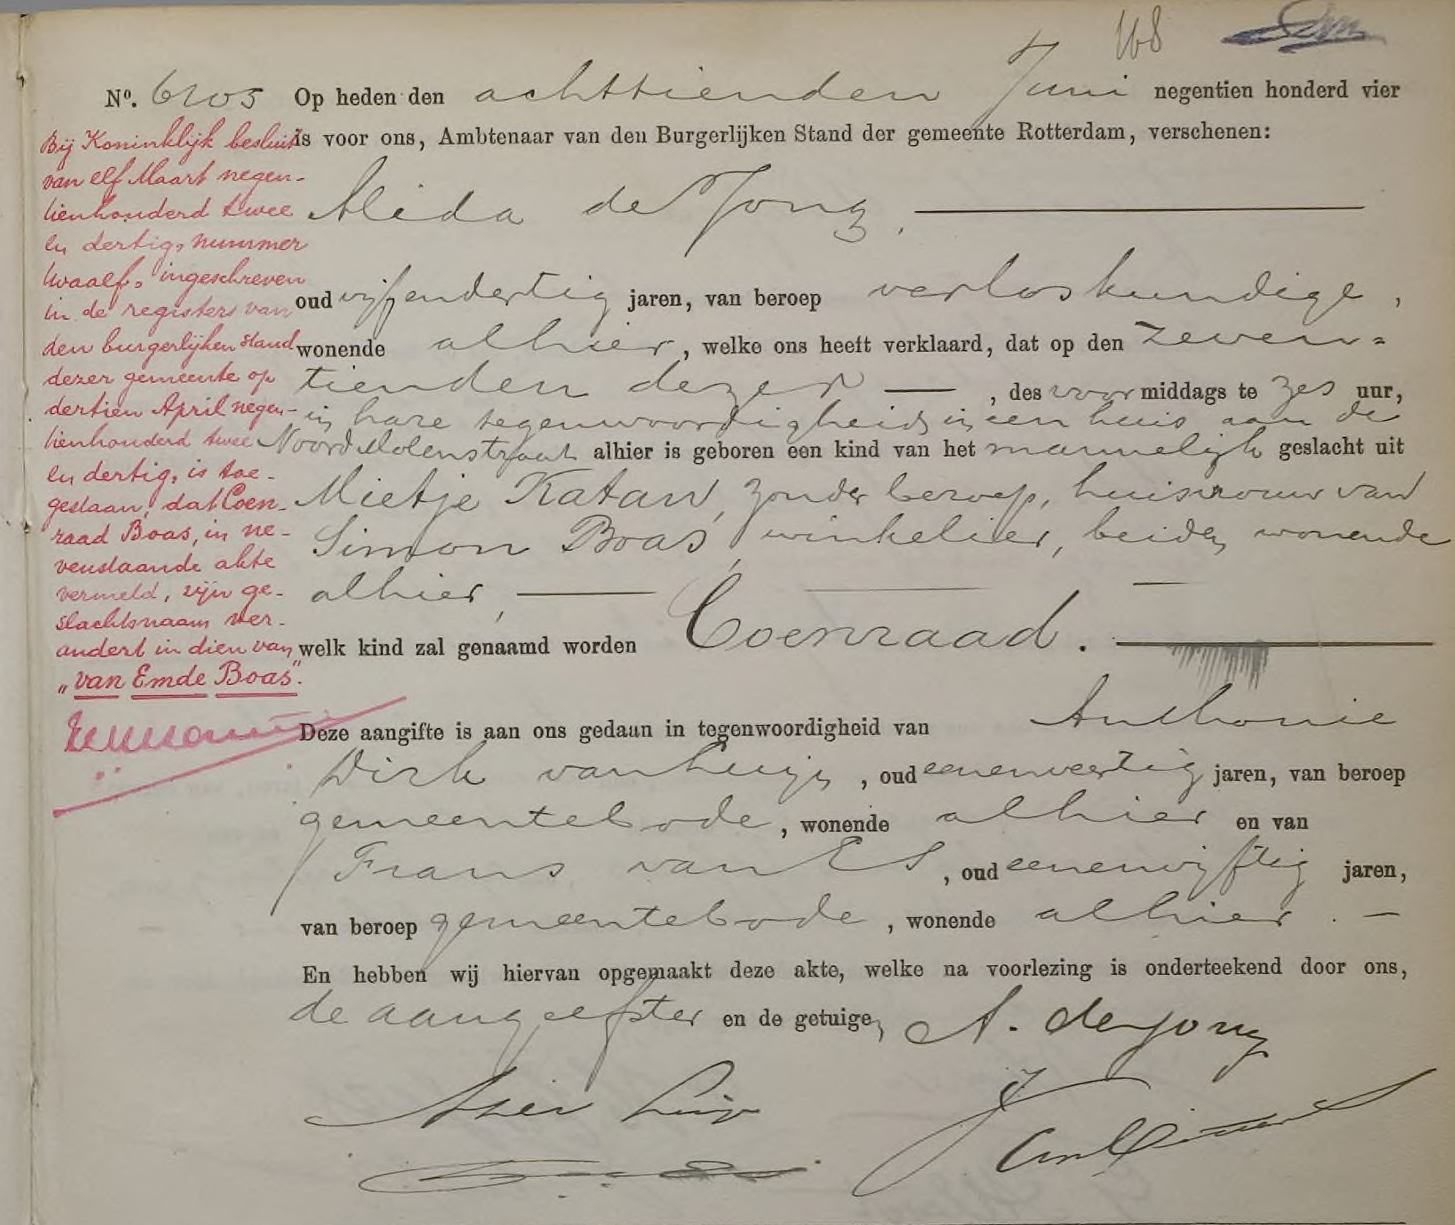 168
Nº. 6205 Op heden den achttienden Juni negentien honderd vier
is voor ons, Ambtenaar van den Burgerlijken Stand der gemeente Rotterdam, verschenen:
Alida de Jong,
oud vijfendertig jaren, van beroep verloskundige,
wonende alhier, welke ons heeft verklaard, dat op den zeven=
tienden dezer, des voormiddags te zes uur,
in hare tegenwoordigheid in een huis aan de
Noordmolenstraat alhier is geboren een kind van het mannelijk geslacht uit
Mietje Katan, zonder beroep, huisvrouw van
Simon Boas, winkelier, beiden wonende
alhier,
welk kind zal genaamd worden Coenraad.
Deze aangifte is aan ons gedaan in tegenwoordigheid van Anthonie
Dirk van Luijn, oud eenenveertig jaren, van beroep
gemeentebode, wonende alhier en van
Frans van Es, oud eenenvijftig jaren,
van beroep gemeentebode, wonende alhier.
En hebben wij hiervan opgemaakt deze akte, welke na voorlezing is onderteekend door ons,
de aangeefster en de getuigen, A. de Jong
Bij Koninklijk besluit
van elf Maart negen-
tienhonderd twee
en dertig, nummer
twaalf, ingeschreven
in de registers van
den burgerlijken stand
dezer gemeente op
dertien April negen-
tienhonderd twee
en dertig, is toe-
gestaan, dat Coen-
raad Boas, in ne-
venstaande akte
vermeld, zijn ge-
slachtsnaam ver-
andert in dien van
„van Emde Boas".